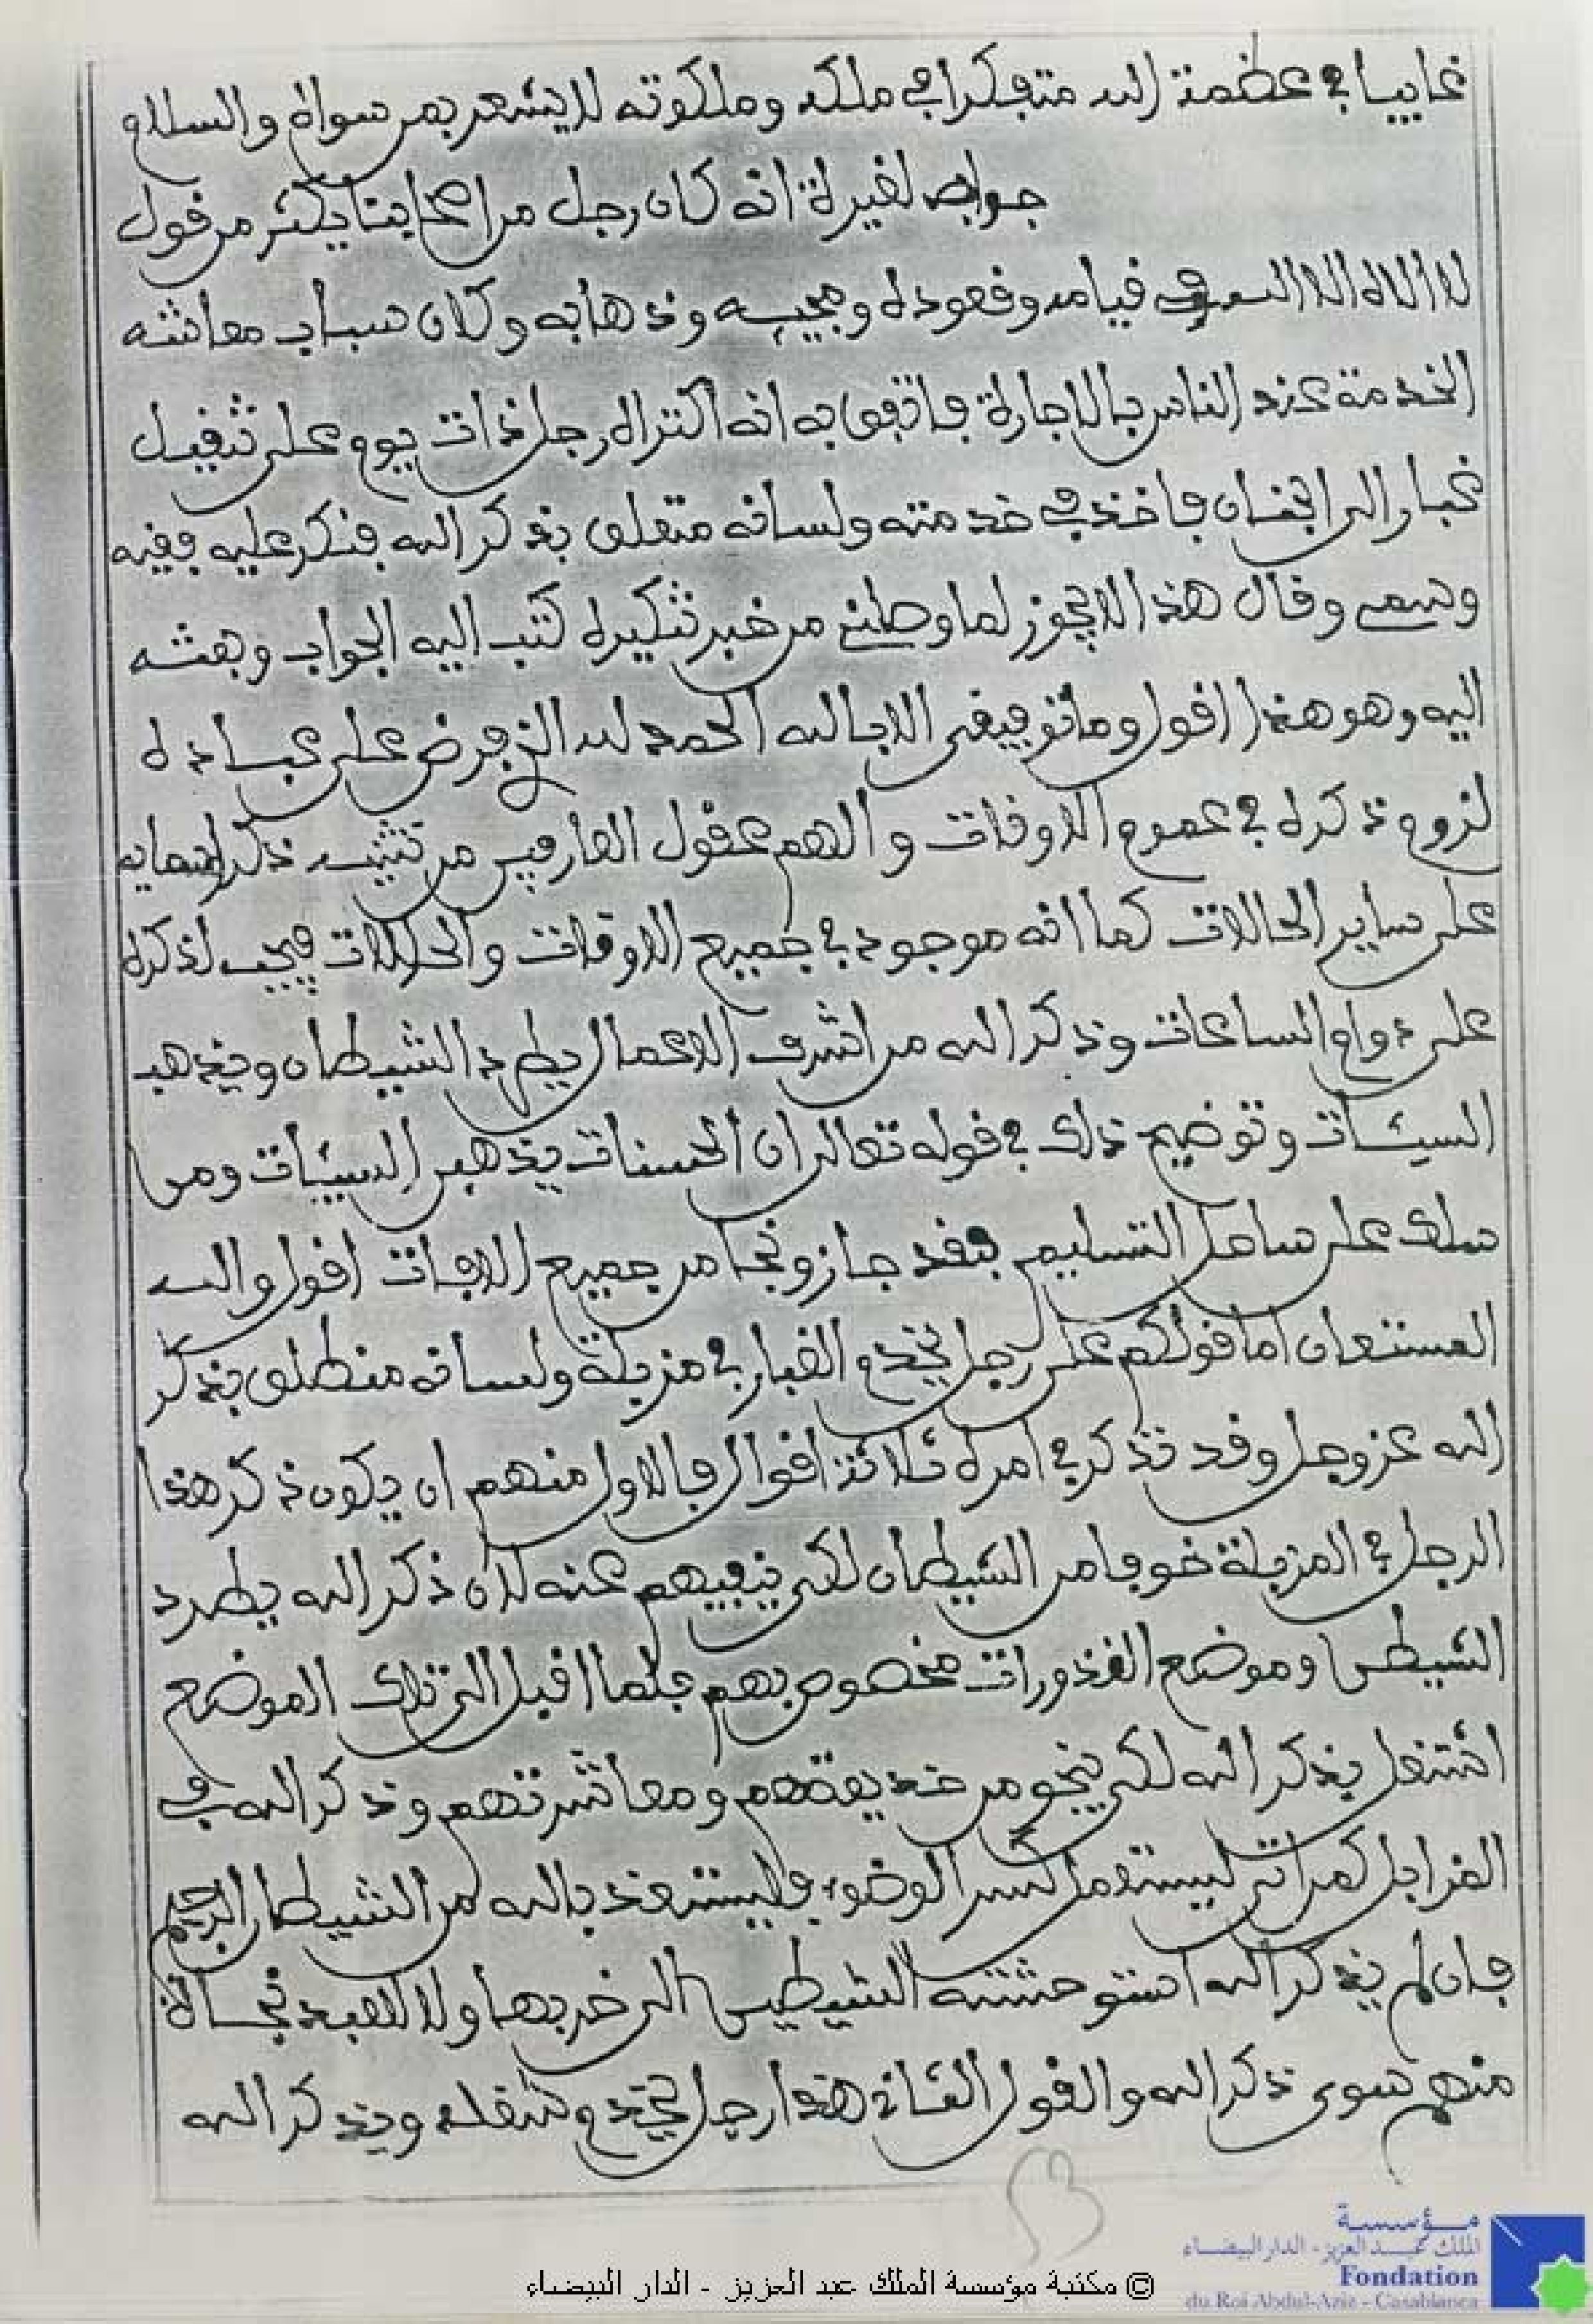 غايبا في عظمة الله متفكرا في ملكه وملكوته لا يشعر بمن سواه والسلام
جواب لغيره انه كان رجل من اصحابنا يكثر من قول
لا الاه الا الله في قيامه وقعوده ومجيبه وذهابه وكان سباب معاشه
الخدمة عند الناس بالاجارة فاتفق به انه اكتراه رجل ذات يوم على تثقيل
غبار الى اجنان فاخذ في خدمته ولسانه متعلق بذكر الله فنكر عليه فقيه
وسمع وقال هذا لا يجوز لما وصلني من خبر تنكيره كتب اليه الجواب وبعثه
اليه وهو هذا اقول وما توفيقي الا بالله الحمد لله الذي فرض على عباده
لزوم ذكره في عموم الاوقات والهم عقول العارفين من تثنيه ذكر اسمايه
على ساير الحالات كما انه موجود في جميع الاوقات والحركات فيجب لذكره
على دوام الساعات وذكر الله من اشرف الاعمال يطرد الشيطان ويذهب
السيئات وتوضيح ذلك في قوله تعالى ان الحسنات يذهبن السيئات ومن
سلك على ساحل التسليم فقد جاز ونجا من جميع الافات اقول والله
المستعان اما قولكم على رجل يخدم الغبار في مزبلة ولسانه منطلق بذكر
الله عز وجل وقد تذكر في امره ثلاثة اقوال فالاول منهم ان يكون ذكر هذا
الرجل في المزبلة خوفا من الشيطان لكي ينفيهم عنه لان ذكر الله يطرد
الشيطين وموضع القذورات مخصوص بهم فلما اقبل الى تلك الموضع
اشتغل بذكر الله لكي ينجو من خديعتهم ومعاشرتهم وذكر الله في
المزابل كمن اتى ليستعمل لسر الوضوء فليستعذ بالله من الشيطان الرجيم
فان لم يذكر الله استوحشته الشيطين الى خربها ولا للعبد نجاة
منهم سوى ذكر الله والقول الثاني هذا رجل يخدم شغله ويذكر الله
© مكتبة مؤسسة الملك عبد العزيز - الدار البيضاء
مؤسسة
الملك عبد العزيز - الدار البيضاء
Fondation
du Roi Abdul-Aziz - Casablanca